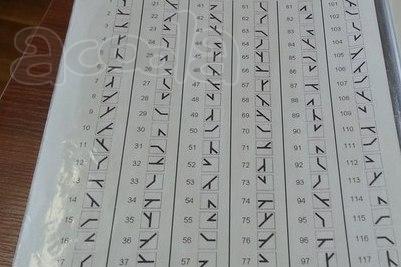 21 41 61 81 101
2 22 42 62 82 102
3 23 43 63 83 103
4 24 44 64 84 104
5 25 45 65 85 105
6 26 46 66 86 106
7 27 47 67 87 107
8 28 48 68 88 108
9 29 49 69 89 109
10 30 50 70 90 110
11 31 51 71 91 111
12 32 52 72 92 112
13 33 53 73 93 113
14 34 54 74 94 114
15 35 55 75 95 115
16 36 56 76 96 116
17 37 57 77 97 117
acola